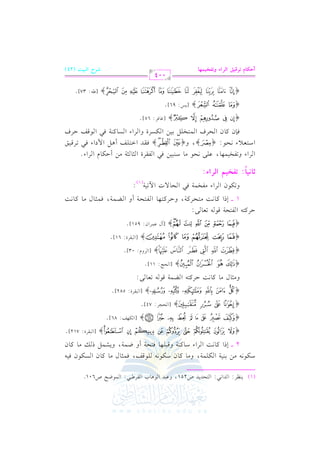 أحكام ترقيق الراء وتفخيمها
٤٠٠
﴿إِنَّا ءَامَنَّا بِرَبِّنَا لِيَغْفِرَ لَنَا خَطَايَانَا وَمَا أَكْرَهْتَنَا عَلَيْهِ مِنَ السِّحْرِ﴾ [طه: ٧٣].
﴿وَمَا عَلَّمْنَاهُ الشِّعْرَ﴾ [يس: ٦٩].
﴿إِن فِي صُدُورِهِمْ إِلَّا كِبْرٌ﴾ [غافر: ٥٦].
فإن كان الحرف المتخلل بين الكسرة والراء الساكنة في الوقف حرف
استعلاء نحو: ﴿مِصْرَ﴾، و﴿الْقِطْرِ﴾ فقد اختلف أهل الأداء في ترقيق
الراء وتفخيمها، على نحو ما سنبين في الفقرة الثالثة من أحكام الراء.
ثانياً: تفخيم الراء:
وتكون الراء مفخمة في الحالات الآتية(١):
١ ـ إذا كانت متحركة، وحركتها الفتحة أو الضمة، فمثال ما كانت
حركته الفتحة قوله تعالى:
﴿فَبِمَا رَحْمَةٍ مِّنَ اللَّهِ لِنتَ لَهُمْ﴾ [آل عمران: ١٥٩].
﴿فَمَا رَبِحَت تِّجَارَتُهُمْ وَمَا كَانُوا مُهْتَدِينَ﴾ [البقرة: ١٦].
﴿فِطْرَتَ اللَّهِ الَّتِي فَطَرَ النَّاسَ عَلَيْهَا﴾ [الروم: ٣٠].
﴿ذَٰلِكَ هُوَ الْخُسْرَانُ الْمُبِينُ﴾ [الحج: ١١].
ومثال ما كانت حركته الضمة قوله تعالى:
﴿كُلٌّ ءَامَنَ بِاللَّهِ وَمَلَائِكَتِهِ وَكُتُبِهِ وَرُسُلِهِ﴾ [البقرة: ٢٨٥].
﴿إِخْوَانًا عَلَىٰ سُرُرٍ مُّتَقَابِلِينَ﴾ [الحجر: ٤٧].
﴿وَكَيْفَ تَصْبِرُ عَلَىٰ مَا لَمْ تُحِطْ بِهِ خُبْرًا﴾ [الكهف: ٦٨].
﴿وَلَا يَزَالُونَ يُقَاتِلُونَكُمْ حَتَّىٰ يَرُدُّوكُمْ عَن دِينِكُمْ إِنِ اسْتَطَاعُوا﴾ [البقرة: ٢١٧].
٢ ـ إذا كانت الراء ساكنة وقبلها فتحة أو ضمة، ويشمل ذلك ما كان
سكونه من بنية الكلمة، وما كان سكونه للوقف، فمثال ما كان السكون فيه
(١) ينظر: الداني: التحديد ص١٥٢، وعبد الوهاب القرطبي: الموضح ص١٠٦.